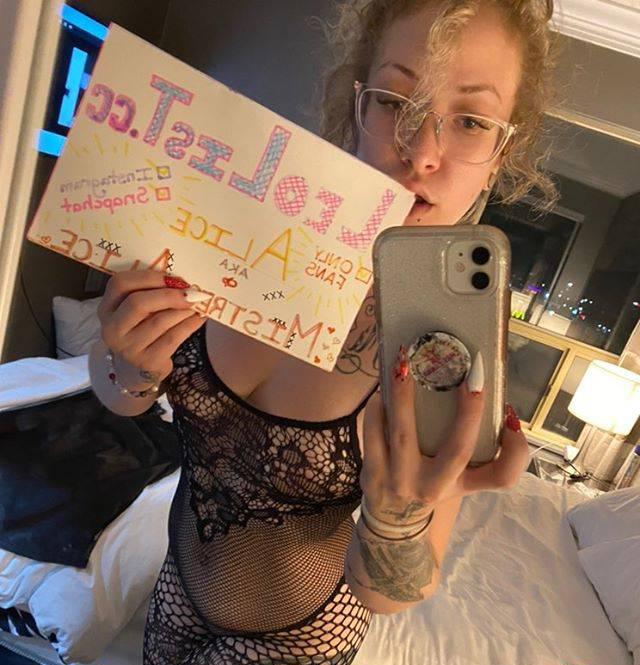 LEOLIST.cc
☑ Instagram
☐ Snapchat
ONLY
FANS
ALICE
AKA
xxx
xxx
MISTRESS ALICE